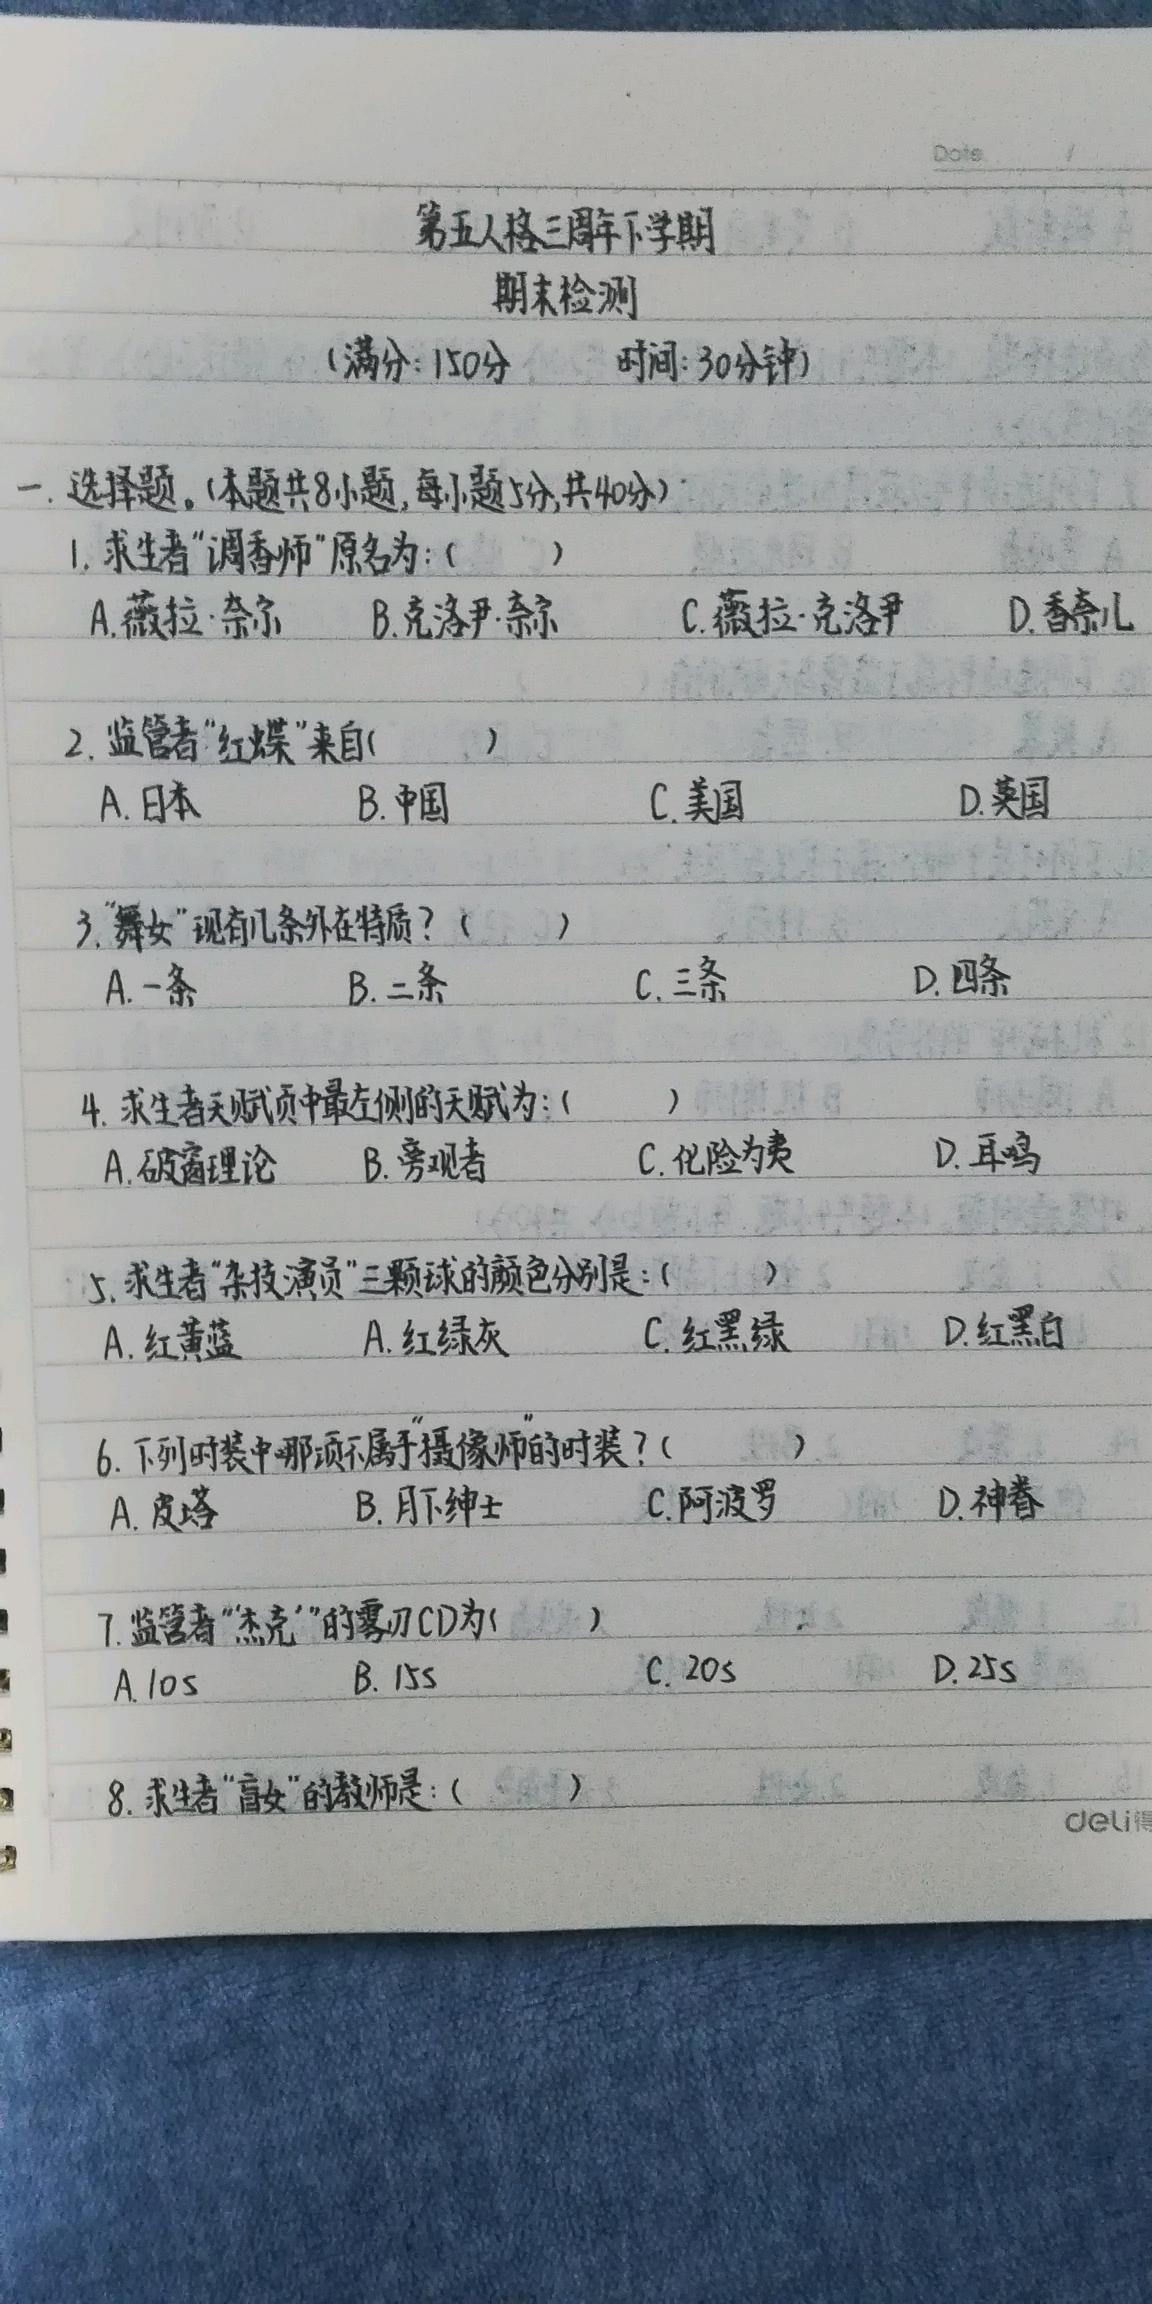 Date /
第五人格三周年下学期
期末检测
(满分:150分 时间:30分钟)
一.选择题。(本题共8小题,每小题5分,共40分)
1.求生者"调香师"原名为:( )
A.薇拉·奈尔 B.克洛尹·奈尔 C.薇拉·克洛尹 D.香奈儿
2.监管者"红蝶"来自( )
A.日本 B.中国 C.美国 D.英国
3."舞女"现有几条外在特质?( )
A.一条 B.二条 C.三条 D.四条
4.求生者天赋页中最左侧的天赋为:( )
A.破窗理论 B.旁观者 C.化险为夷 D.耳鸣
5.求生者"杂技演员"三颗球的颜色分别是:( )
A.红黄蓝 A.红绿灰 C.红黑绿 D.红黑白
6.下列时装中哪项不属于"摄像师"的时装?( )
A.皮塔 B.月下绅士 C.阿波罗 D.神眷
7.监管者"'杰克'"的雾刃CD为( )
A.10s B.15s C.20s D.25s
8.求生者"盲女"的教师是:( )
deli得